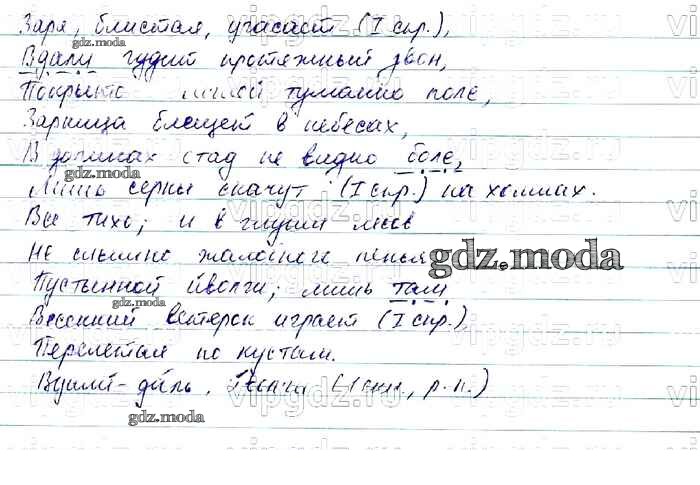 Заря, блистая, угасает (I спр.),
Вдали гудит протяжный звон,
Покрыто мглой туманно поле,
Зарница блещет в небесах,
В долинах стад не видно боле,
Лишь серны скачут (I спр.) на холмах.
Все тихо; и в глуши лесов
Не слышно жалобного пенья
Пустынной иволги; лишь там
Весенний ветерок играет (I спр.)
Перелетая по кустам.
Вдали - даль,
gdz.moda
gdz.moda
gdz.moda
gdz.moda
gdz.moda
vipgdz.ru